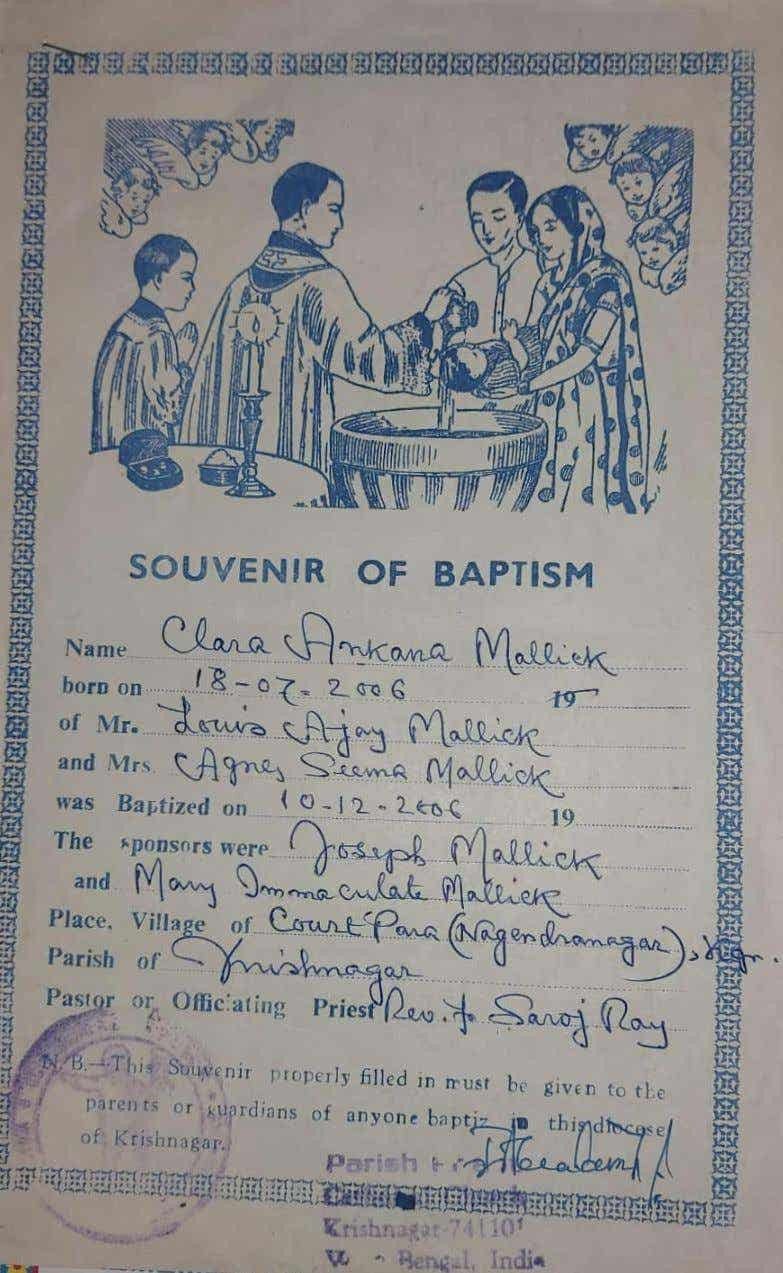 SOUVENIR OF BAPTISM
Name Clara Ankana Mallick
born on 18-07-2006 19
of Mr. Louis Ajay Mallick
and Mrs. Agnes Seema Mallick
was Baptized on 10-12-2006 19
The sponsors were Joseph Mallick
and Mary Immaculate Mallick
Place. Village of Court Para (Nagendranagar), Kgr.
Parish of Krishnagar
Pastor or Officiating Priest Rev. Fr. Saroj Ray
N. B.—This Souvenir properly filled in must be given to the
parents or guardians of anyone baptiz in this diocese
of Krishnagar.
Parish
Krishnagar-741101
Bengal, India